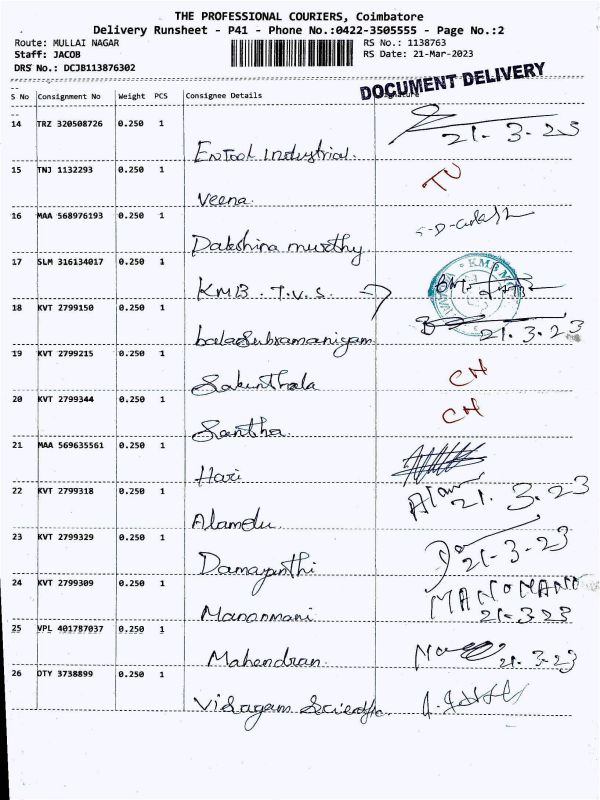 THE PROFESSIONAL COURIERS, Coimbatore
Delivery Runsheet - P41 - Phone No.:0422-3505555 - Page No.:2
Route: MULLAI NAGAR RS No.: 1138763
Staff: JACOB RS Date: 21-Mar-2023
DRS No.: DCJB113876302
DOCUMENT DELIVERY
S No Consignment No Weight PCS Consignee Details Signature
14 TRZ 320508726 0.250 1
21-3-23
EnTool Industrial.
15 TNJ 1132293 0.250 1
Veena
16 MAA 568976193 0.250 1
Dakshina murthy
17 SLM 316134017 0.250 1
KMB
KMB. T.V.S.
18 KVT 2799150 0.250 1
21.3.23
balasubramaniyam
19 KVT 2799215 0.250 1
CN
Sakunthala
20 KVT 2799344 0.250 1
CN
Santha.
21 MAA 569635561 0.250 1
Hari
22 KVT 2799318 0.250 1
21. 3.23
Alamelu.
23 KVT 2799329 0.250 1
21-3-23
Damayanthi
24 KVT 2799309 0.250 1
MANOMANI
21-3-23
Manonmani
25 VPL 401787037 0.250 1
21.3.23
Mahendran.
26 OTY 3738899 0.250 1